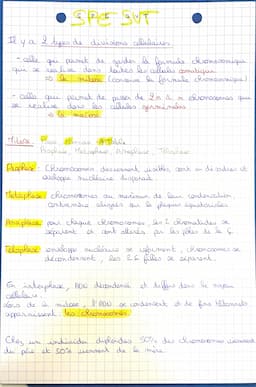 SPE SVT
Il y a 2 types de divisions cellulaires
- celle qui permet de garder la formule chromosomique
qui se réalise dans toutes les cellules somatiques
⇒ la mitose (conserve la formule chromosomique)
- celle qui permet de passer de 2n à n chromosomes qui
se réalise dans les cellules germinales
⇒ la méiose
Mitose
Prophase, Métaphase, Anaphase, Télophase
Prophase: Chromosomes deviennent visibles, sont en désordre et
enveloppe nucléaire disparait
Métaphase: chromosomes au maximum de leur condensation
centromère alignés sur la plaque équatoriale
Anaphase: pour chaque chromosomes, les 2 chromatides se
séparent et sont attirés par les pôles de la c.
Télophase: enveloppe nucléaire se reforment, chromosomes se
décondensent, les 2 c filles se séparent.
En interphase, ADN décondensé et diffus dans le noyau
cellulaire.
Lors de la mitose, l'ADN se condensent et de fins filaments
apparaissent: les chromosomes
Chez un individu diploïdes 50% des chromosomes viennent
du père et 50% viennent de la mère.